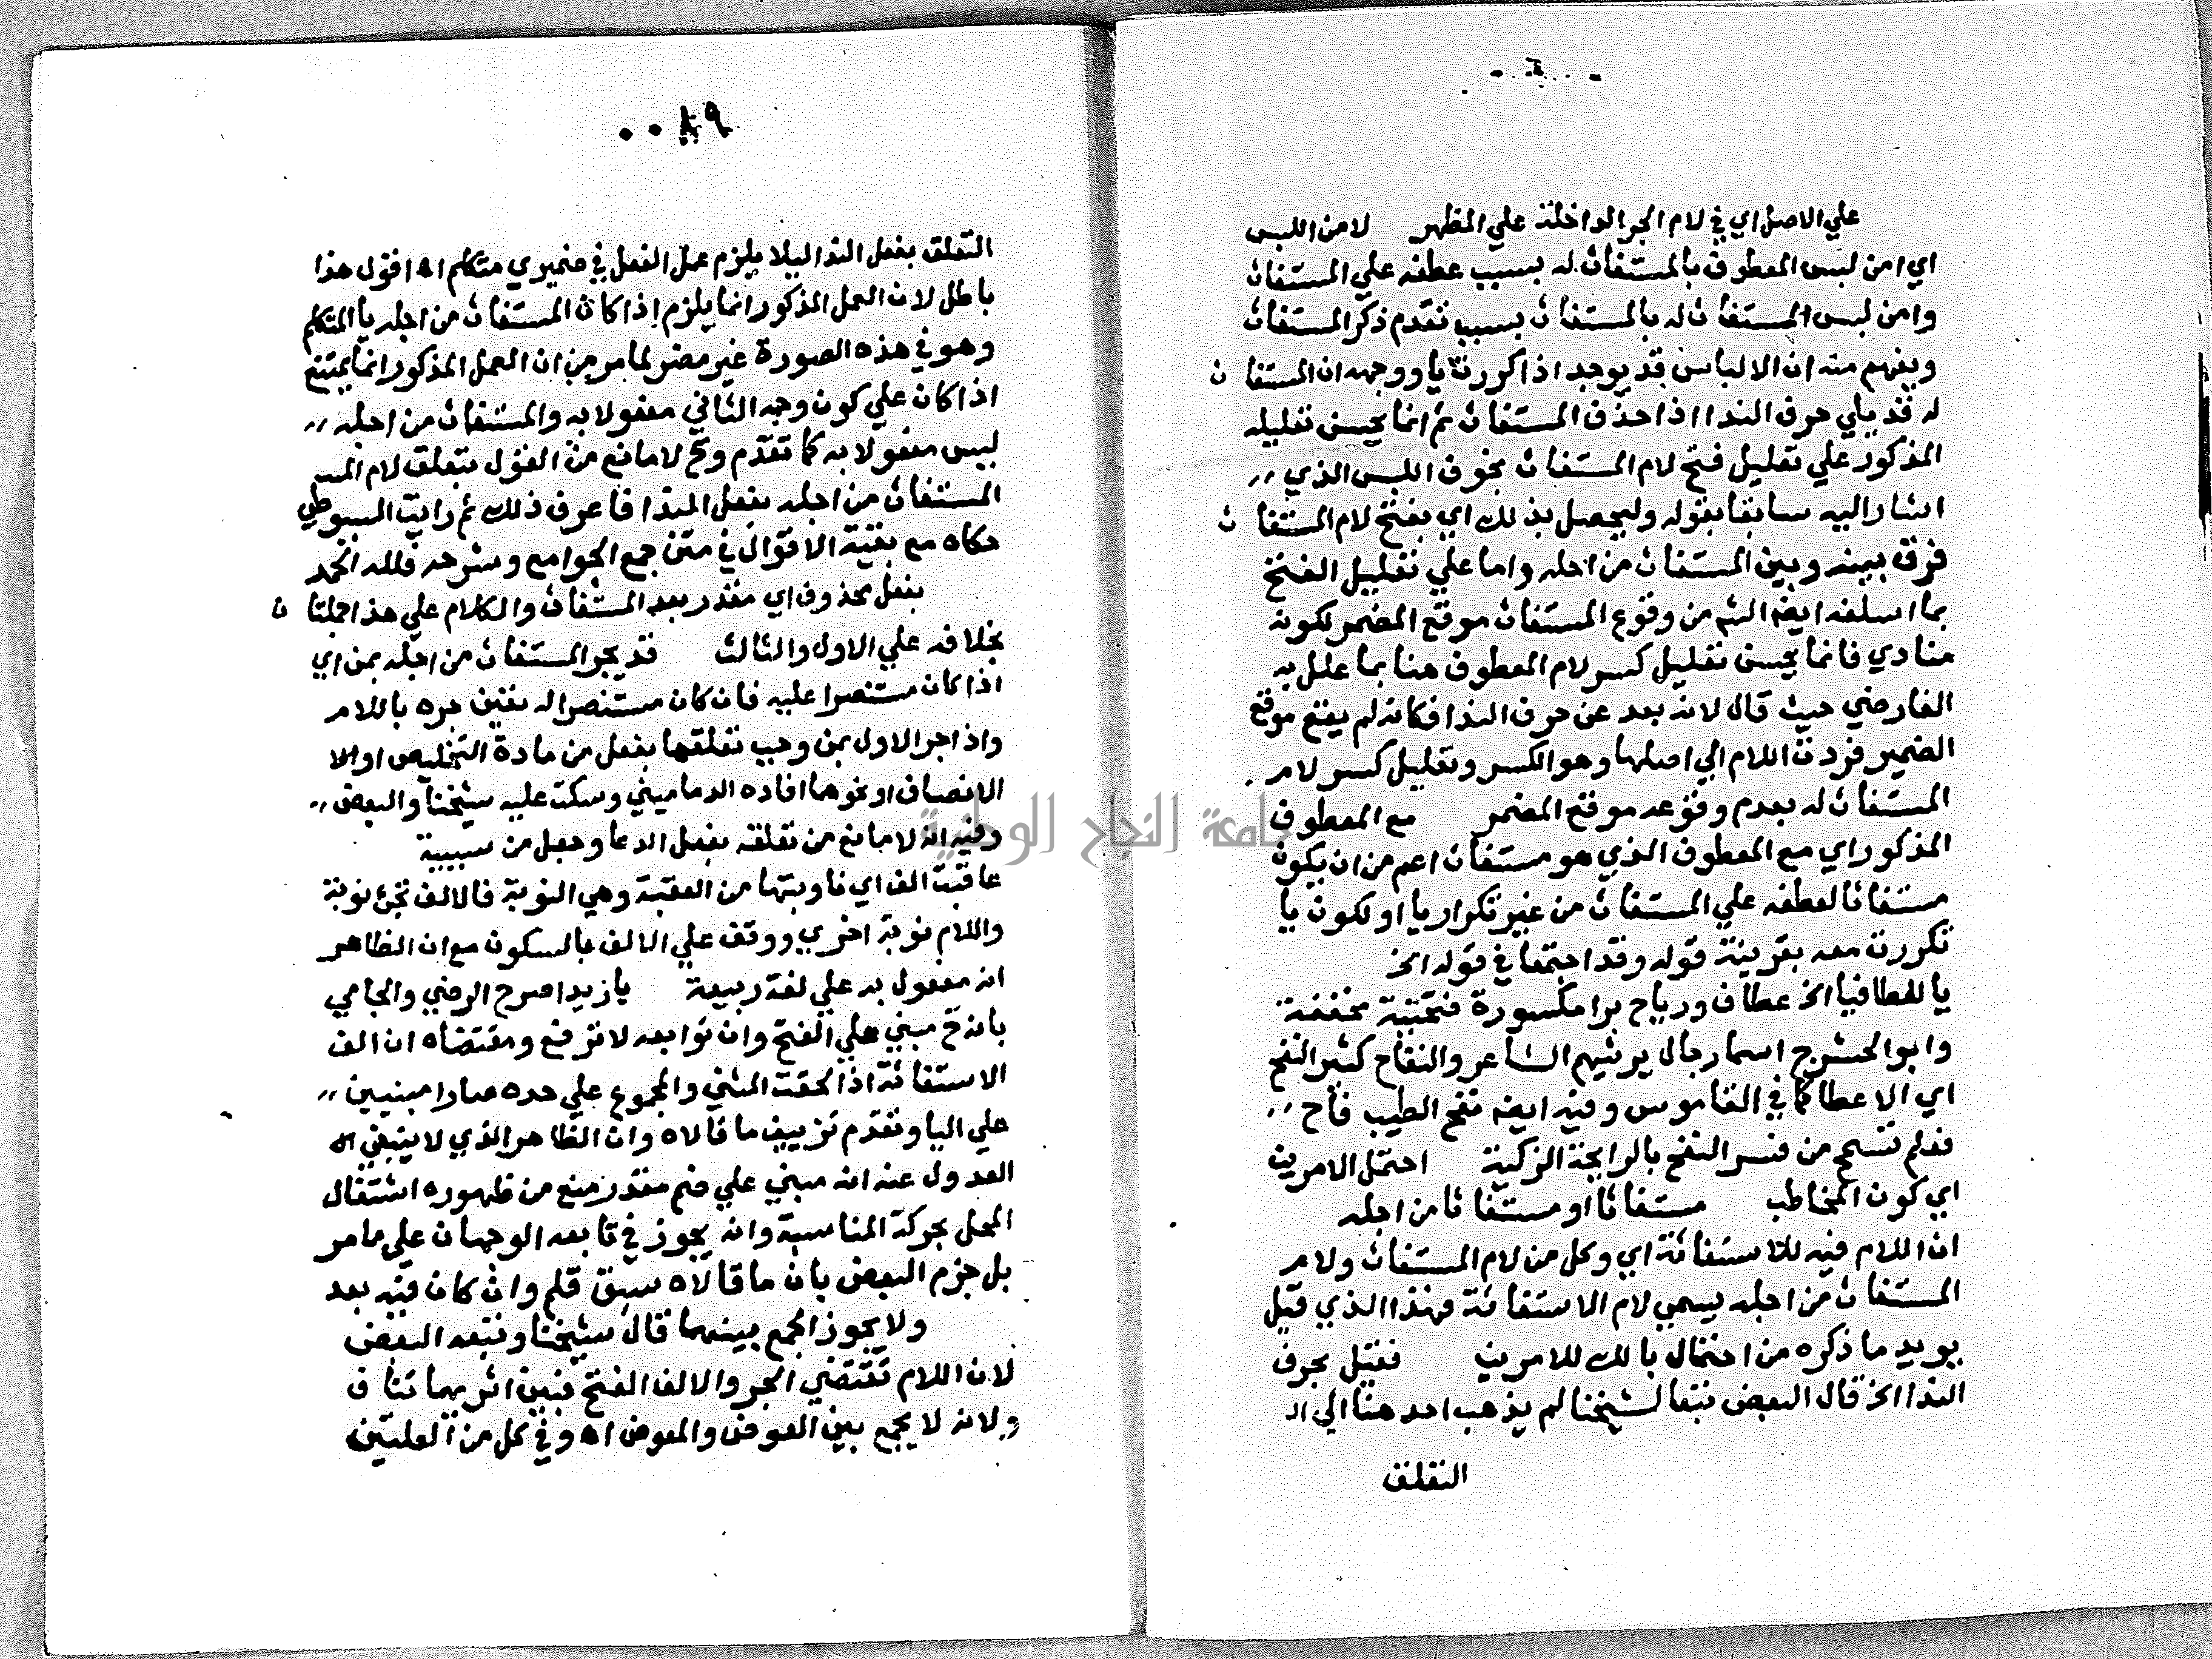 علي الاصل اي في لام الجر الداخلة علي المظهر لامن اللبس
اي امن لبس المعطوف بالمستغاث له بسبب عطفه علي المستغاث
وامن لبس المستغاث له بالمستغاث بسبب تقدم ذكر المستغاث
ويفهم منه ان الالباس قد يوجد اذا كررت يا ووجهه ان المستغا ث
له قد يلي حرف الندا اذا حذف المستغاث ثم انما يحسن تعليله
المذكور علي تعليل فتح لام المستغاث بخوف اللبس الذي
اشار اليه سابقا بقوله وليحصل بذلك اي بفتح لام المستغا ث
فرق بينه وبين المستغاث من اجله واما علي تعليل الفتح
بما اسلفه ايضا الشم من وقوع المستغاث موقع المضمر لكونه
منادي فانما يحسن تعليل كسر لام المعطوف هنا بما علل به
الفارضي حيث قال لانه بعد عن حرف الندا فكانه لم يقع موقع
الضمير فردت اللام الي اصلها وهو الكسر وتعليل كسر لام
المستغاث له بعدم وقوعه موقع المضمر مع المعطوف
المذكور اي مع المعطوف الذي هو مستغاث اعم من ان يكون
مستغاثا لعطفه علي المستغاث من غير تكرار يا او لكون يا
تكررت معه بقرينة قوله وقد اجتمعا في قوله الخ
يا للعطافيا الخ عطاف ورياح برا مكسورة فتحتية مخففة
وابو الحشرج اسما رجال يرثيهم الشاعر والنفاح كثير النفح
اي الاعطا كما في القاموس وفيه ايضا نفح الطيب فاح
فعلم تسمح من فسر النفح بالرايحة الزكية احتمل الامرين
اي كون المخاطب مستغاثا او مستغاثا من اجله
ان اللام فيه للاستغاثة اي وكل من لام المستغاث ولام
المستغاث من اجله يسمي لام الاستغاثة فهذا الذي قيل
يويد ما ذكره من احتمال يالك للامرين فقيل بحرف
الندا الخ قال البعض تبعا لشيخنا لم يذهب احد هنا الي ا
التعلق
٨٩
التعلق بفعل الندا ليلا يلزم عمل الفعل في ضميري متكلم اه اقول هذا
باطل لان العمل المذكور انما يلزم اذا كان المستغاث من اجله يا المتكلم
وهو في هذه الصورة غير مضر لما مر من ان العمل المذكور انما يمتنع
اذا كان علي كون وجه الثاني مفعولا به والمستغاث من اجله
ليس مفعولا به كما تقدم وح لا مانع من القول بتعلق لام
المستغاث من اجله بفعل الندا فاعرف ذلك ثم رايت السيوطي
حكاه مع بقية الاقوال في متن جمع الجوامع وشرحه فلله الحمد
بفعل محذوف اي مقدر بعد المستغاث والكلام علي هذا جملتا ن
بخلافه علي الاول والثالث قد يجر المستغاث من اجله بمن اي
اذا كان مستنصرا عليه فان كان مستنصرا له تعين جره باللام
واذا جر الاول بمن وجب تعلقها بفعل من مادة التخليص او الا
الانصاف او نحوها افاده الدماميني وسكت عليه شيخنا والبعض
وفيه انه لا مانع من تعلقه بفعل الدعا وجعل من سببية
عاقبت الف اي ناوبتها من العقبة وهي النوبة فالالف تجئ نوبة
واللام نوبة اخري ووقف علي الالف بالسكون مع ان الظاهر
انه مفعول به علي لغة ربيعة يا زيدا صرح الرضي والجامي
بانه ح مبني علي الفتح وان توابعه لا ترفع ومقتضاه ان الف
الاستغاثة اذا لحقت المثني والمجموع علي حده صارا مبنيين
علي اليا وتقدم تزييف ما قالاه وان الظاهر الذي لا ينبغي
العدول عنه انه مبني علي ضم مقدر منع من ظهوره اشتغال
المحل بحركة المناسبة وانه يجوز في تابعه الوجهان علي ما مر
بل جزم البعض بان ما قالاه سبق قلم وان كان فيه بعد
ولا يجوز الجمع بينهما قال شيخنا وتبعه البعض
لان اللام تقتضي الجر والالف الفتح فبين اثريهما تناف
ولانه لا يجمع بين العوض والمعوض اه وفي كل من العلتين
جامعة النجاح الوطنية